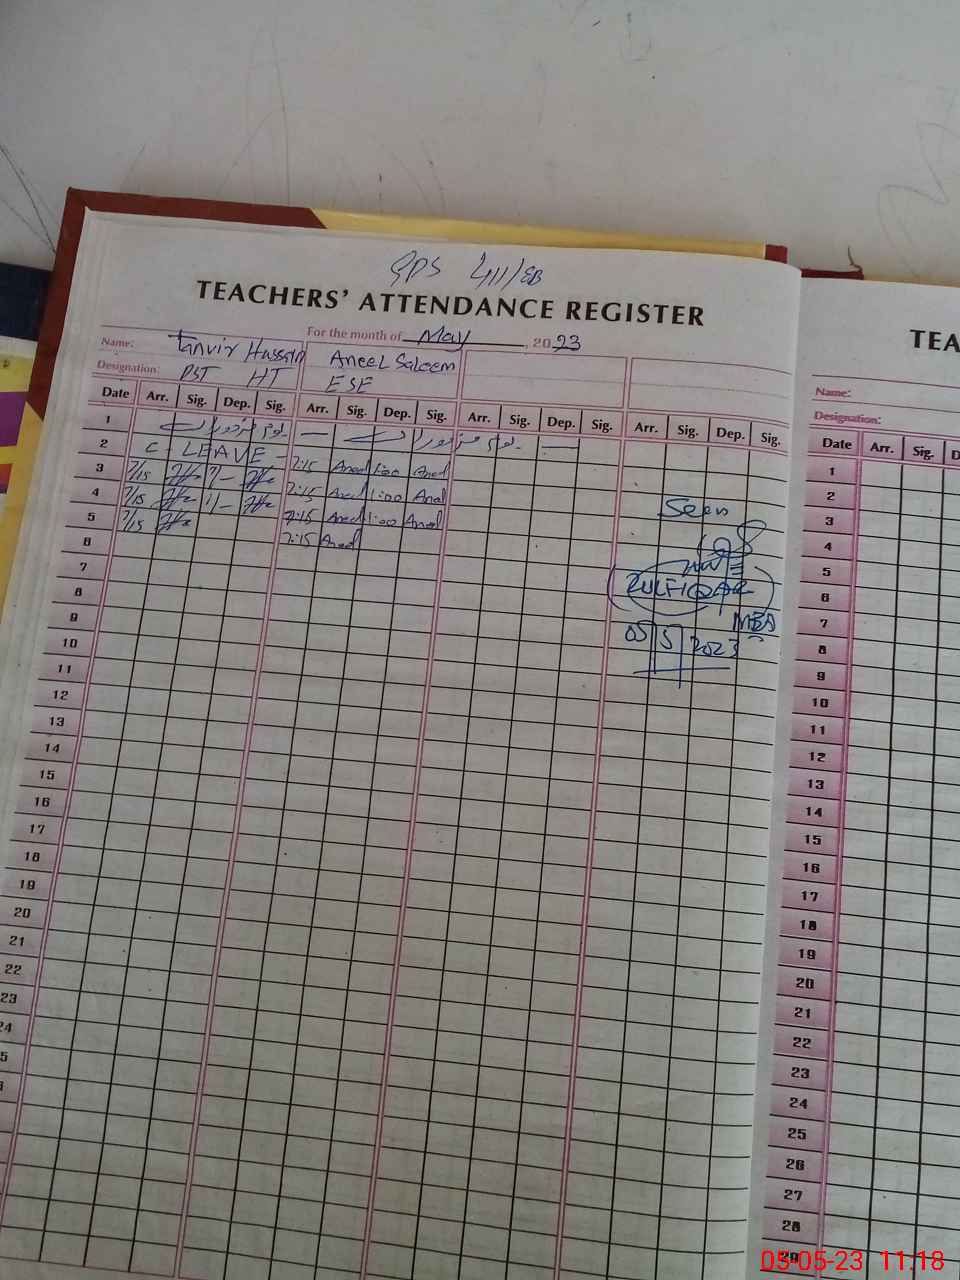 GPS 411/EB
TEACHERS' ATTENDANCE REGISTER
For the month of May, 2023
Name: Tanvir Hussain Aneel Saleem
Designation: PST HT ESE
Date Arr. Sig. Dep. Sig. Arr. Sig. Dep. Sig. Arr. Sig. Dep. Sig. Arr. Sig. Dep. Sig.
1 یوم مزدوراں — یوم مزدوراں —
2 C- LEAVE - 7:15 Aneel 1:00 Aneel
3 7/15 1/- 7:15 Aneel 1:00 Aneel
4 7/15 1/- 7:15 Aneel 1:00 Aneel
5 7/15 7:15 Aneel
6
7
8
9
10
11
12
13
14
15
16
17
18
19
20
21
22
23
24
5
Seen
ZULFIQAR
MEA
05 5 2023
TEA
Name:
Designation:
Date Arr. Sig. D
1
2
3
4
5
6
7
8
9
10
11
12
13
14
15
16
17
18
19
20
21
22
23
24
25
26
27
28
29
05-05-23 11.18